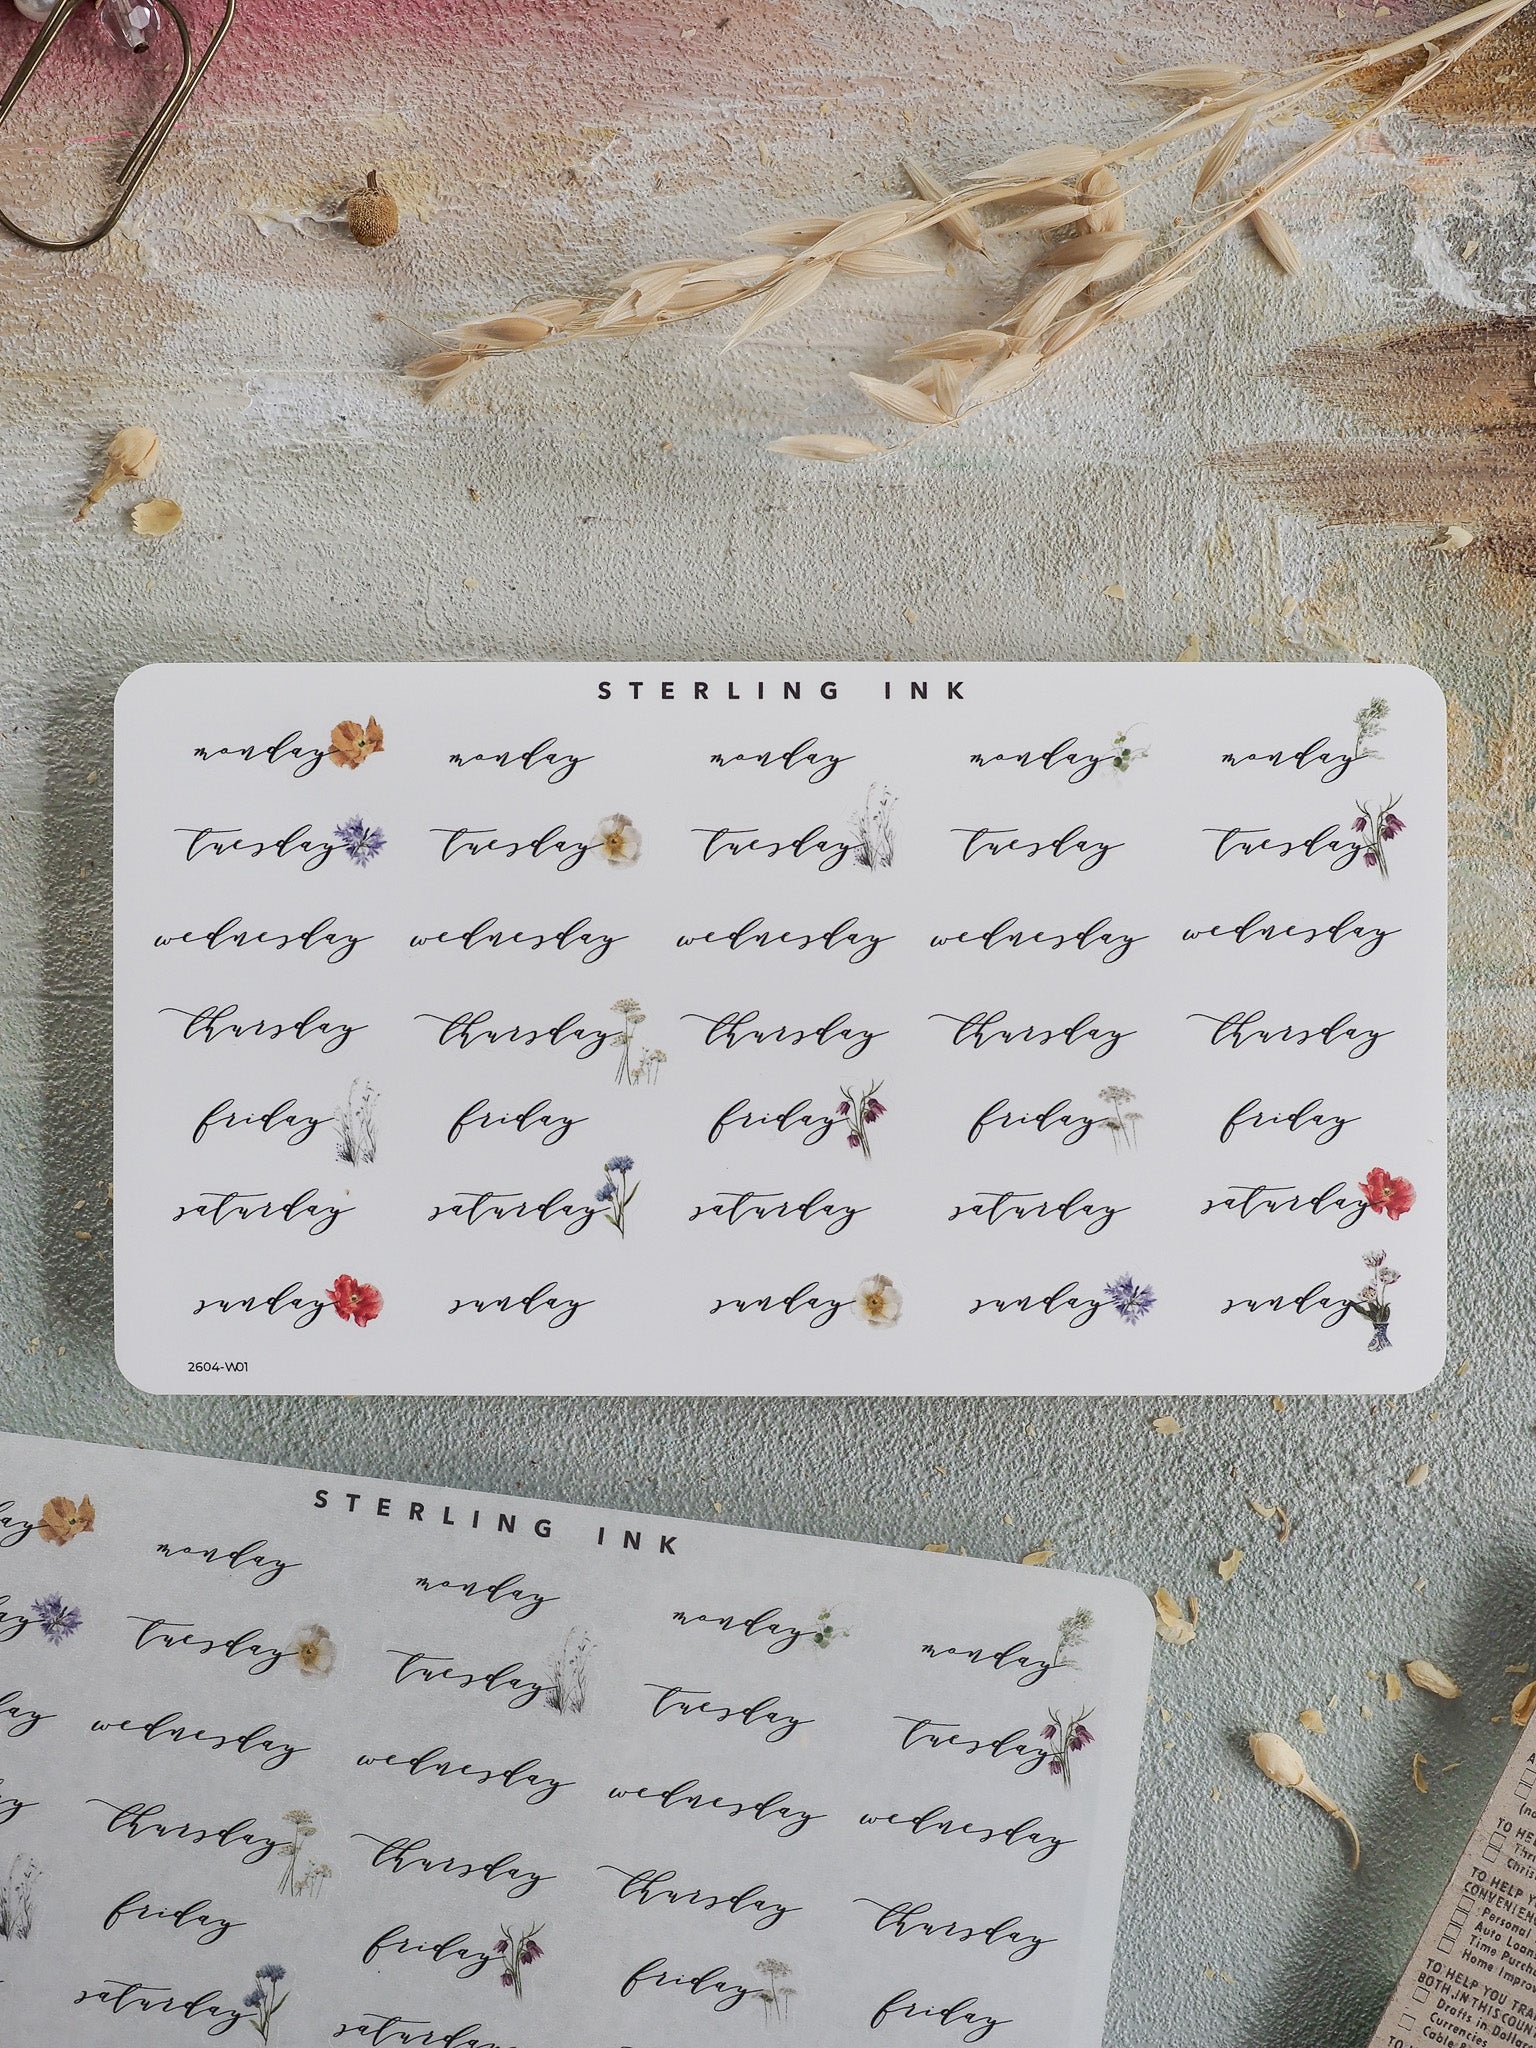 STERLING INK
monday monday monday monday monday
tuesday tuesday tuesday tuesday tuesday
wednesday wednesday wednesday wednesday wednesday
thursday thursday thursday thursday thursday
friday friday friday friday friday
saturday saturday saturday saturday saturday
sunday sunday sunday sunday sunday
2604-W01
STERLING INK
ay monday monday monday monday
ay tuesday tuesday tuesday tuesday
ay wednesday wednesday wednesday wednesday
y thursday thursday thursday thursday
friday friday friday friday
saturday saturday
TO HE
Thri
Chris
TO HELP Y
CONVENIEN
Personal
Auto Loan
Time Purcha
Home Improv
TO HELP YOU TRA
BOTH IN THIS COUN
Drafts in Dollar
Currencies
Cable &
TO